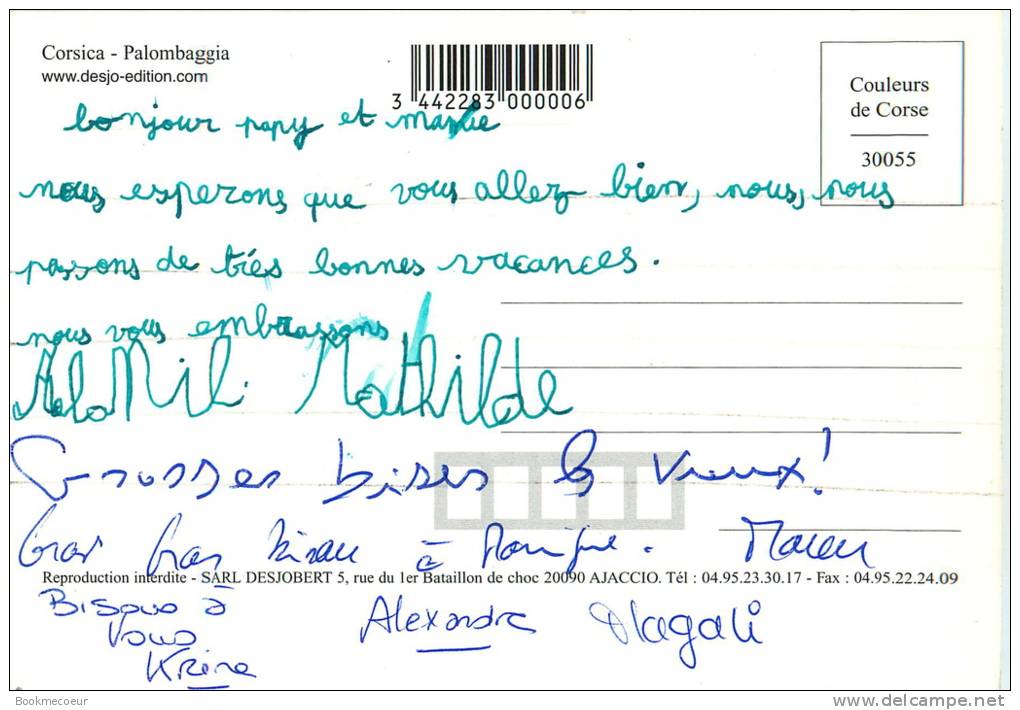 Corsica - Palombaggia
www.desjo-edition.com
3 442283 000006
Couleurs
de Corse
30055
bonjour papy et mamie
nous esperons que vous allez bien, nous, nous
passons de trés bonnes vacances.
nous vous embrassons
Mathilde
Grosses bises les vieux!
à
Reproduction interdite - SARL DESJOBERT 5, rue du 1er Bataillon de choc 20090 AJACCIO. Tél : 04.95.23.30.17 - Fax : 04.95.22.24.09
Bisous à
vous
Alexandra Magali
Bookmecoeur
delcampe.net